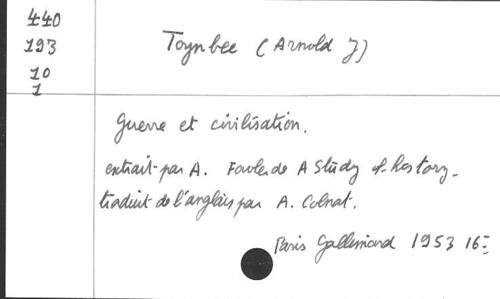 440
193
10
1
Toynbee (Arnold J)
Guerre et civilisation.
extrait par A. Fowler de A Study of history.
traduit de l'anglais par A. Colnat.
Paris Gallimard 1953 16º